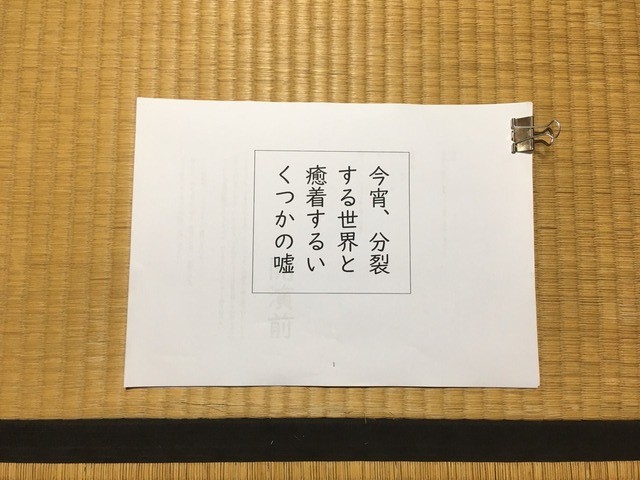 今宵、分裂
する世界と
癒着するい
くつかの嘘
1